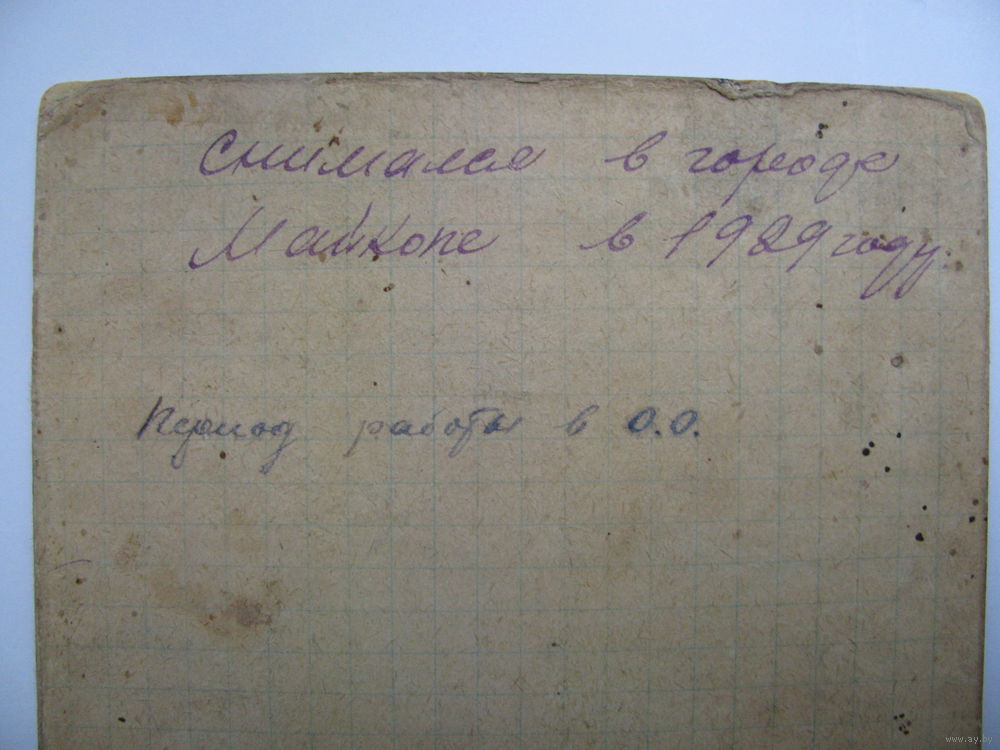 Снимался в городе
Майкопе в 1929 году.
Период работы в О.О.
www.ay.by